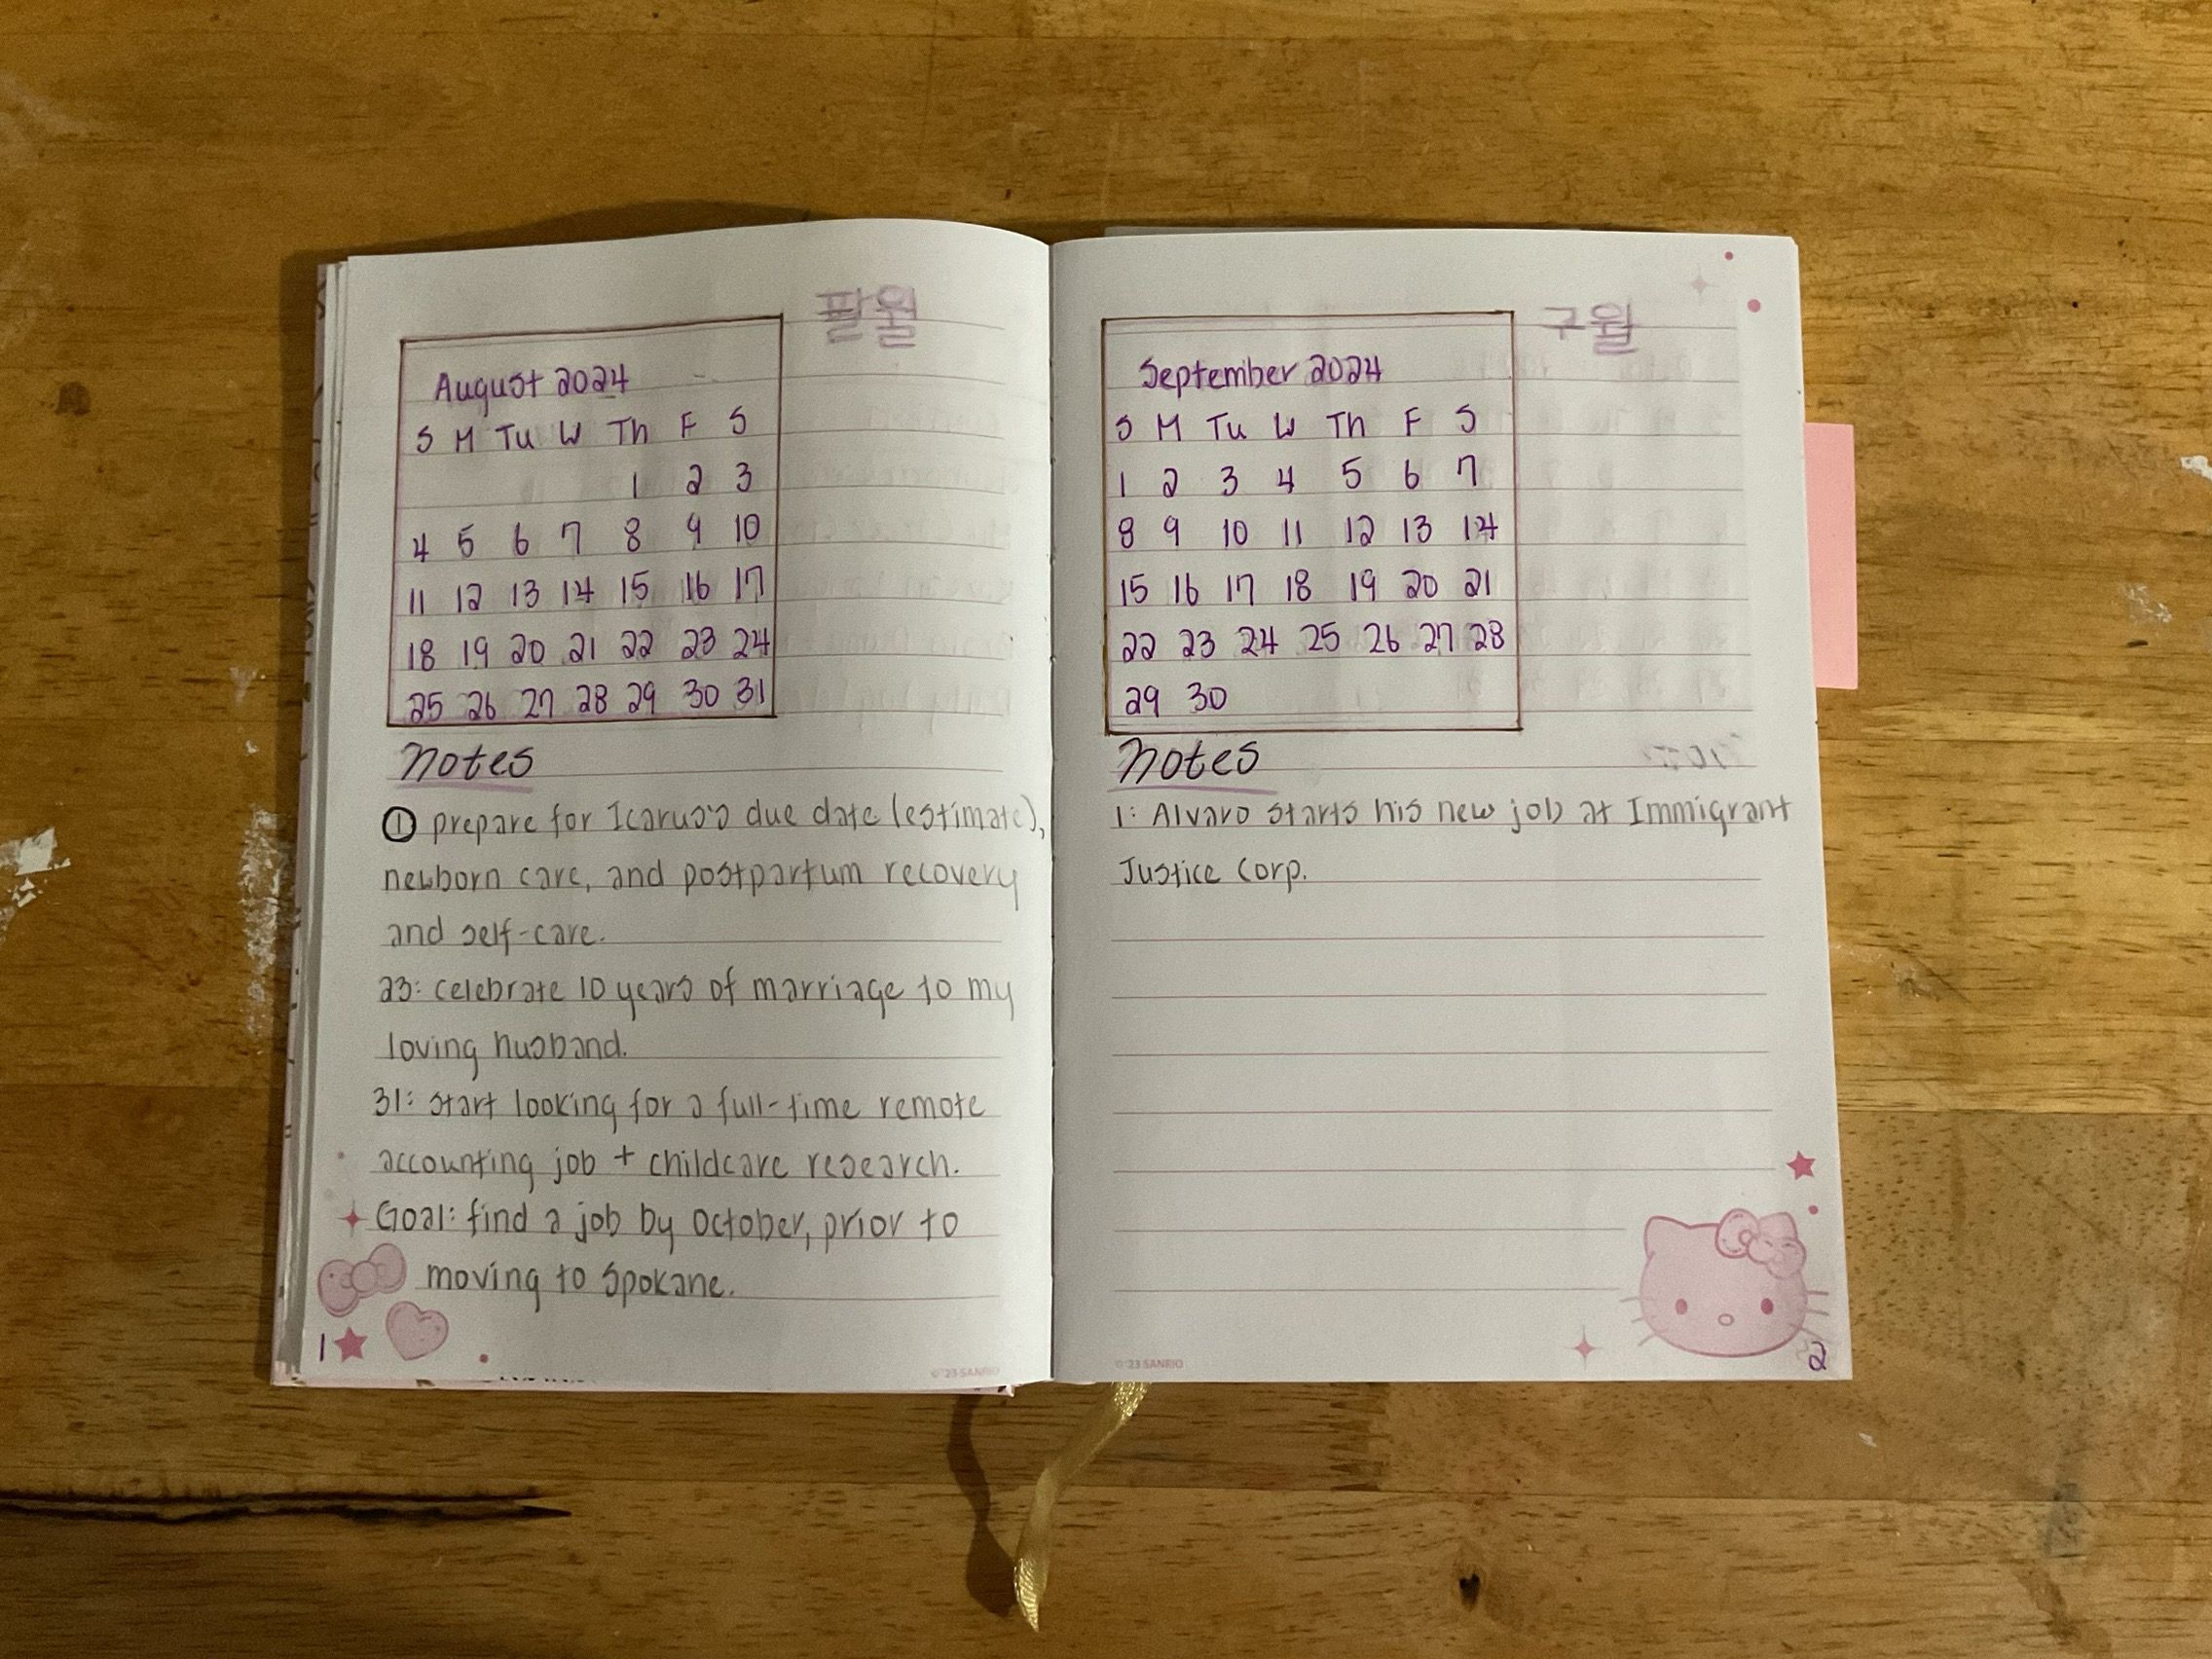 팔월
August 2024
S M Tu W Th F S
1 2 3
4 5 6 7 8 9 10
11 12 13 14 15 16 17
18 19 20 21 22 23 24
25 26 27 28 29 30 31
Notes
① prepare for Icarus's due date (estimate),
newborn care, and postpartum recovery
and self-care.
23: celebrate 10 years of marriage to my
loving husband.
31: start looking for a full-time remote
accounting job + childcare research.
Goal: find a job by October, prior to
moving to Spokane.
1
© '23 SANRIO
구월
September 2024
S M Tu W Th F S
1 2 3 4 5 6 7
8 9 10 11 12 13 14
15 16 17 18 19 20 21
22 23 24 25 26 27 28
29 30
Notes
1: Alvaro starts his new job at Immigrant
Justice Corp.
© '23 SANRIO
2